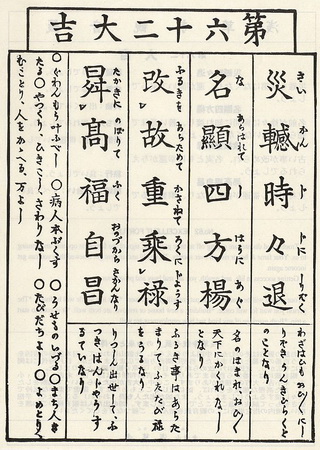 第六十二大吉
災轗時々退
さい かん ト ドに しりぞく
名顯四方楊
な あらはれて ー はうに あぐ
改故重乗禄
ふるきを あらためて かさねて ろくにじようす
昇髙福自昌
たかきに のぼりて ふく おのづから さかんなり
わざはひもおひ〳〵にし
りぞきうんきひらくと
のことなり
名のほまれ、おひ〳〵
天下にかくれなし
となり
ふるき事はあらた
まりて、ふたたび禄
をうるなり
りつしん出世して、ふ
つきはんじやうす
るていなり
○ぐわんもう叶ふべし ○病人本ぶくす ○うせものいづる ○まち人き
たる ○やづくり、ひきこし、さわりなし ○たびだちよし ○よめとり、
むことり、人をかゝへる、万よし